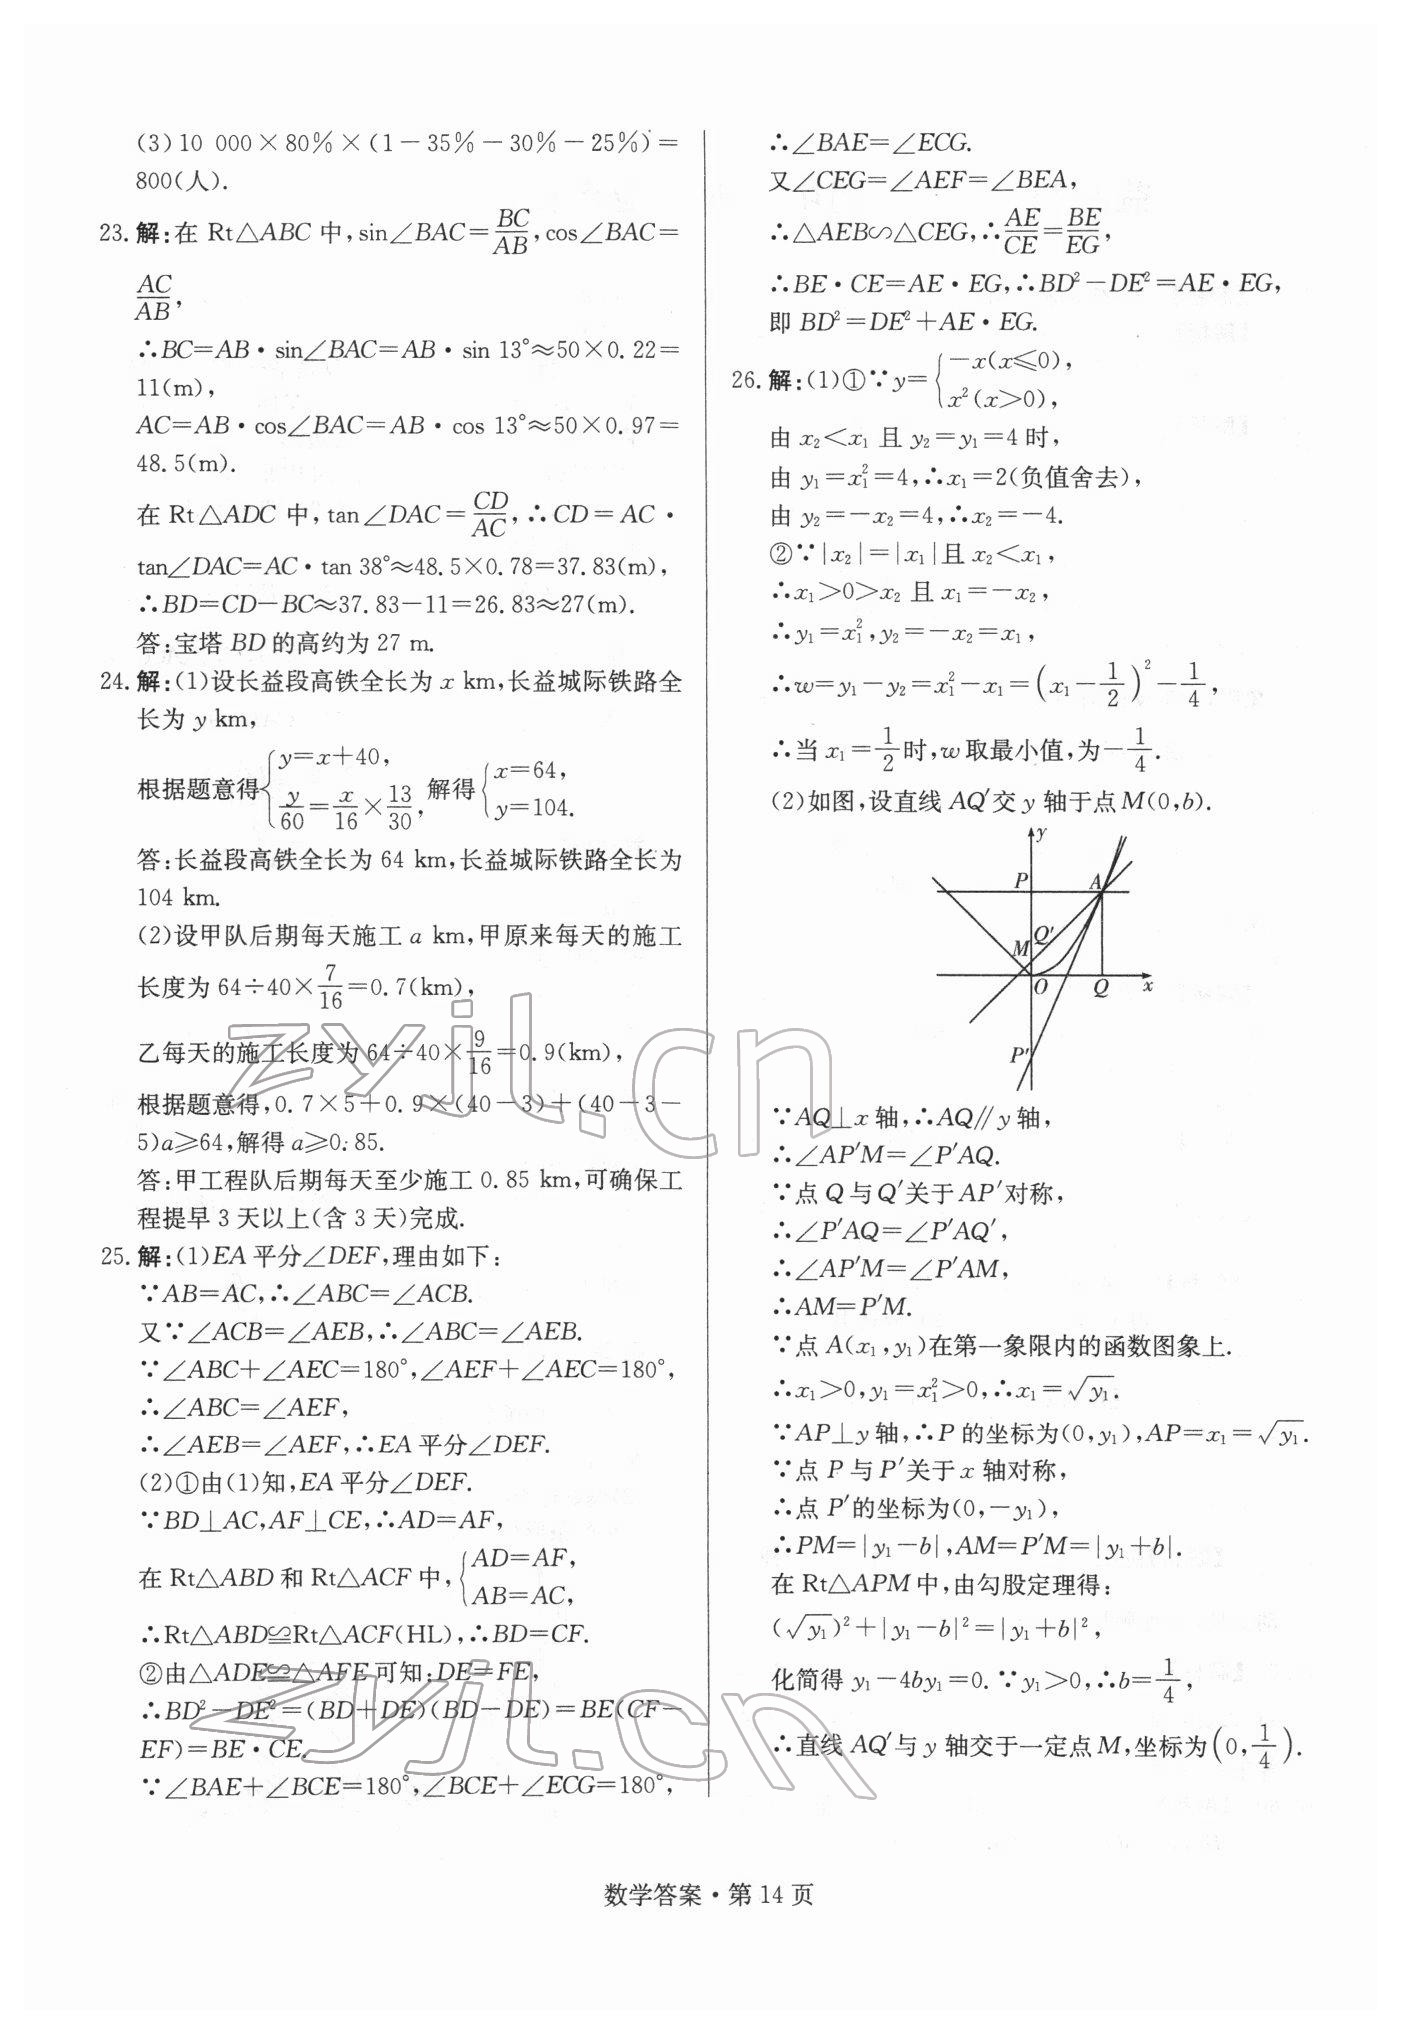 (3)10 000×80%×(1－35%－30%－25%)＝
800(人).
23. 解:在 Rt△ABC 中,sin∠BAC＝BC/AB,cos∠BAC＝
AC/AB,
∴BC＝AB·sin∠BAC＝AB·sin 13°≈50×0.22＝
11(m),
AC＝AB·cos∠BAC＝AB·cos 13°≈50×0.97＝
48.5(m).
在 Rt△ADC 中,tan∠DAC＝CD/AC,∴CD＝AC·
tan∠DAC＝AC·tan 38°≈48.5×0.78＝37.83(m),
∴BD＝CD－BC≈37.83－11＝26.83≈27(m).
答:宝塔 BD 的高约为 27 m.
24. 解:(1)设长益段高铁全长为 x km,长益城际铁路全
长为 y km,
根据题意得{y＝x＋40, y/60＝x/16×13/30, 解得{x＝64, y＝104.
答:长益段高铁全长为 64 km,长益城际铁路全长为
104 km.
(2)设甲队后期每天施工 a km,甲原来每天的施工
长度为 64÷40×7/16＝0.7(km),
乙每天的施工长度为 64÷40×9/16＝0.9(km),
根据题意得,0.7×5＋0.9×(40－3)＋(40－3－
5)a≥64,解得 a≥0.85.
答:甲工程队后期每天至少施工 0.85 km,可确保工
程提早 3 天以上(含 3 天)完成.
25. 解:(1)EA 平分∠DEF,理由如下:
∵AB＝AC,∴∠ABC＝∠ACB.
又∵∠ACB＝∠AEB,∴∠ABC＝∠AEB.
∵∠ABC＋∠AEC＝180°,∠AEF＋∠AEC＝180°,
∴∠ABC＝∠AEF,
∴∠AEB＝∠AEF,∴EA 平分∠DEF.
(2)①由(1)知,EA 平分∠DEF.
∵BD⊥AC,AF⊥CE,∴AD＝AF,
在 Rt△ABD 和 Rt△ACF 中,{AD＝AF, AB＝AC,
∴Rt△ABD≌Rt△ACF(HL),∴BD＝CF.
②由△ADE≌△AFE 可知:DE＝FE,
∴BD²－DE²＝(BD＋DE)(BD－DE)＝BE(CF－
EF)＝BE·CE.
∵∠BAE＋∠BCE＝180°,∠BCE＋∠ECG＝180°,
∴∠BAE＝∠ECG.
又∠CEG＝∠AEF＝∠BEA,
∴△AEB∽△CEG,∴AE/CE＝BE/EG,
∴BE·CE＝AE·EG,∴BD²－DE²＝AE·EG,
即 BD²＝DE²＋AE·EG.
26. 解:(1)①∵y＝{－x(x≤0), x²(x＞0),
由 x₂＜x₁ 且 y₂＝y₁＝4 时,
由 y₁＝x₁²＝4,∴x₁＝2(负值舍去),
由 y₂＝－x₂＝4,∴x₂＝－4.
②∵|x₂|＝|x₁|且 x₂＜x₁,
∴x₁＞0＞x₂ 且 x₁＝－x₂,
∴y₁＝x₁²,y₂＝－x₂＝x₁,
∴w＝y₁－y₂＝x₁²－x₁＝(x₁－1/2)²－1/4,
∴当 x₁＝1/2时,w取最小值,为－1/4.
(2)如图,设直线 AQ′交 y 轴于点 M(0,b).
y
P A
Q′
M
O Q x
P′
∵AQ⊥x 轴,∴AQ∥y 轴,
∴∠AP′M＝∠P′AQ.
∵点 Q 与 Q′关于 AP′对称,
∴∠P′AQ＝∠P′AQ′,
∴∠AP′M＝∠P′AM,
∴AM＝P′M.
∵点 A(x₁,y₁)在第一象限内的函数图象上.
∴x₁＞0,y₁＝x₁²＞0,∴x₁＝√y₁.
∵AP⊥y 轴,∴P 的坐标为(0,y₁),AP＝x₁＝√y₁.
∵点 P 与 P′关于 x 轴对称,
∴点 P′的坐标为(0,－y₁),
∴PM＝|y₁－b|,AM＝P′M＝|y₁＋b|.
在 Rt△APM 中,由勾股定理得:
(√y₁)²＋|y₁－b|²＝|y₁＋b|²,
化简得 y₁－4by₁＝0.∵y₁＞0,∴b＝1/4,
∴直线 AQ′与 y 轴交于一定点 M,坐标为(0,1/4).
zyjl.cn
zyjl.cn
数学答案·第 14 页